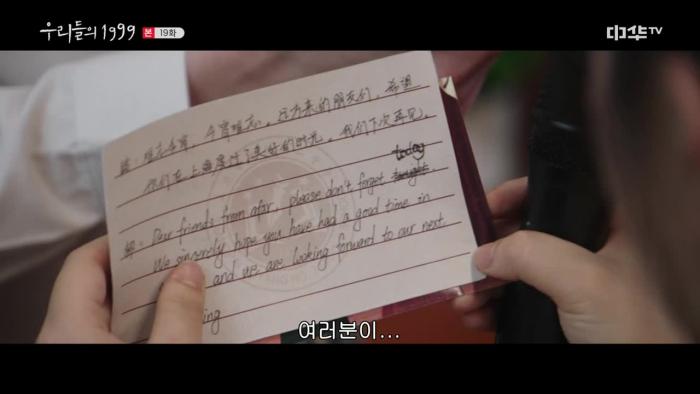 우리들의 1999 본 19화
中华TV
难忘今宵,今宵难忘,远方来的朋友们,希望
你们在上海度过了美好的时光,我们下次再见。
Dear friends from afar, please don't forget today
We sincerely hope you have had a good time in
and we are looking forward to our next
ing
여러분이...